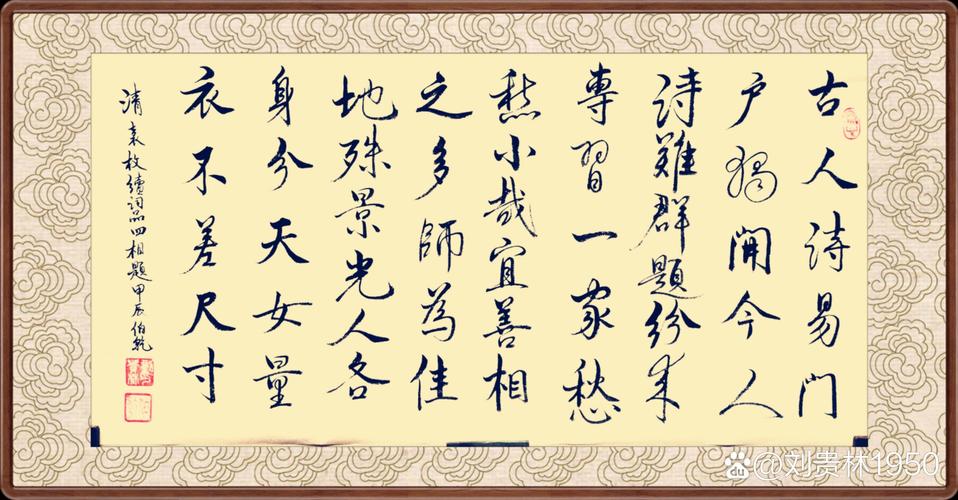 古人诗易門
户獨開今人
诗難群題纷来
專習一家愁
愁小哉宜善相
之多師為佳
地殊景光人各
身分天女量
衣不差尺寸
清袁枚續词品四相題甲辰伯乾
Bai du @刘贵林1950